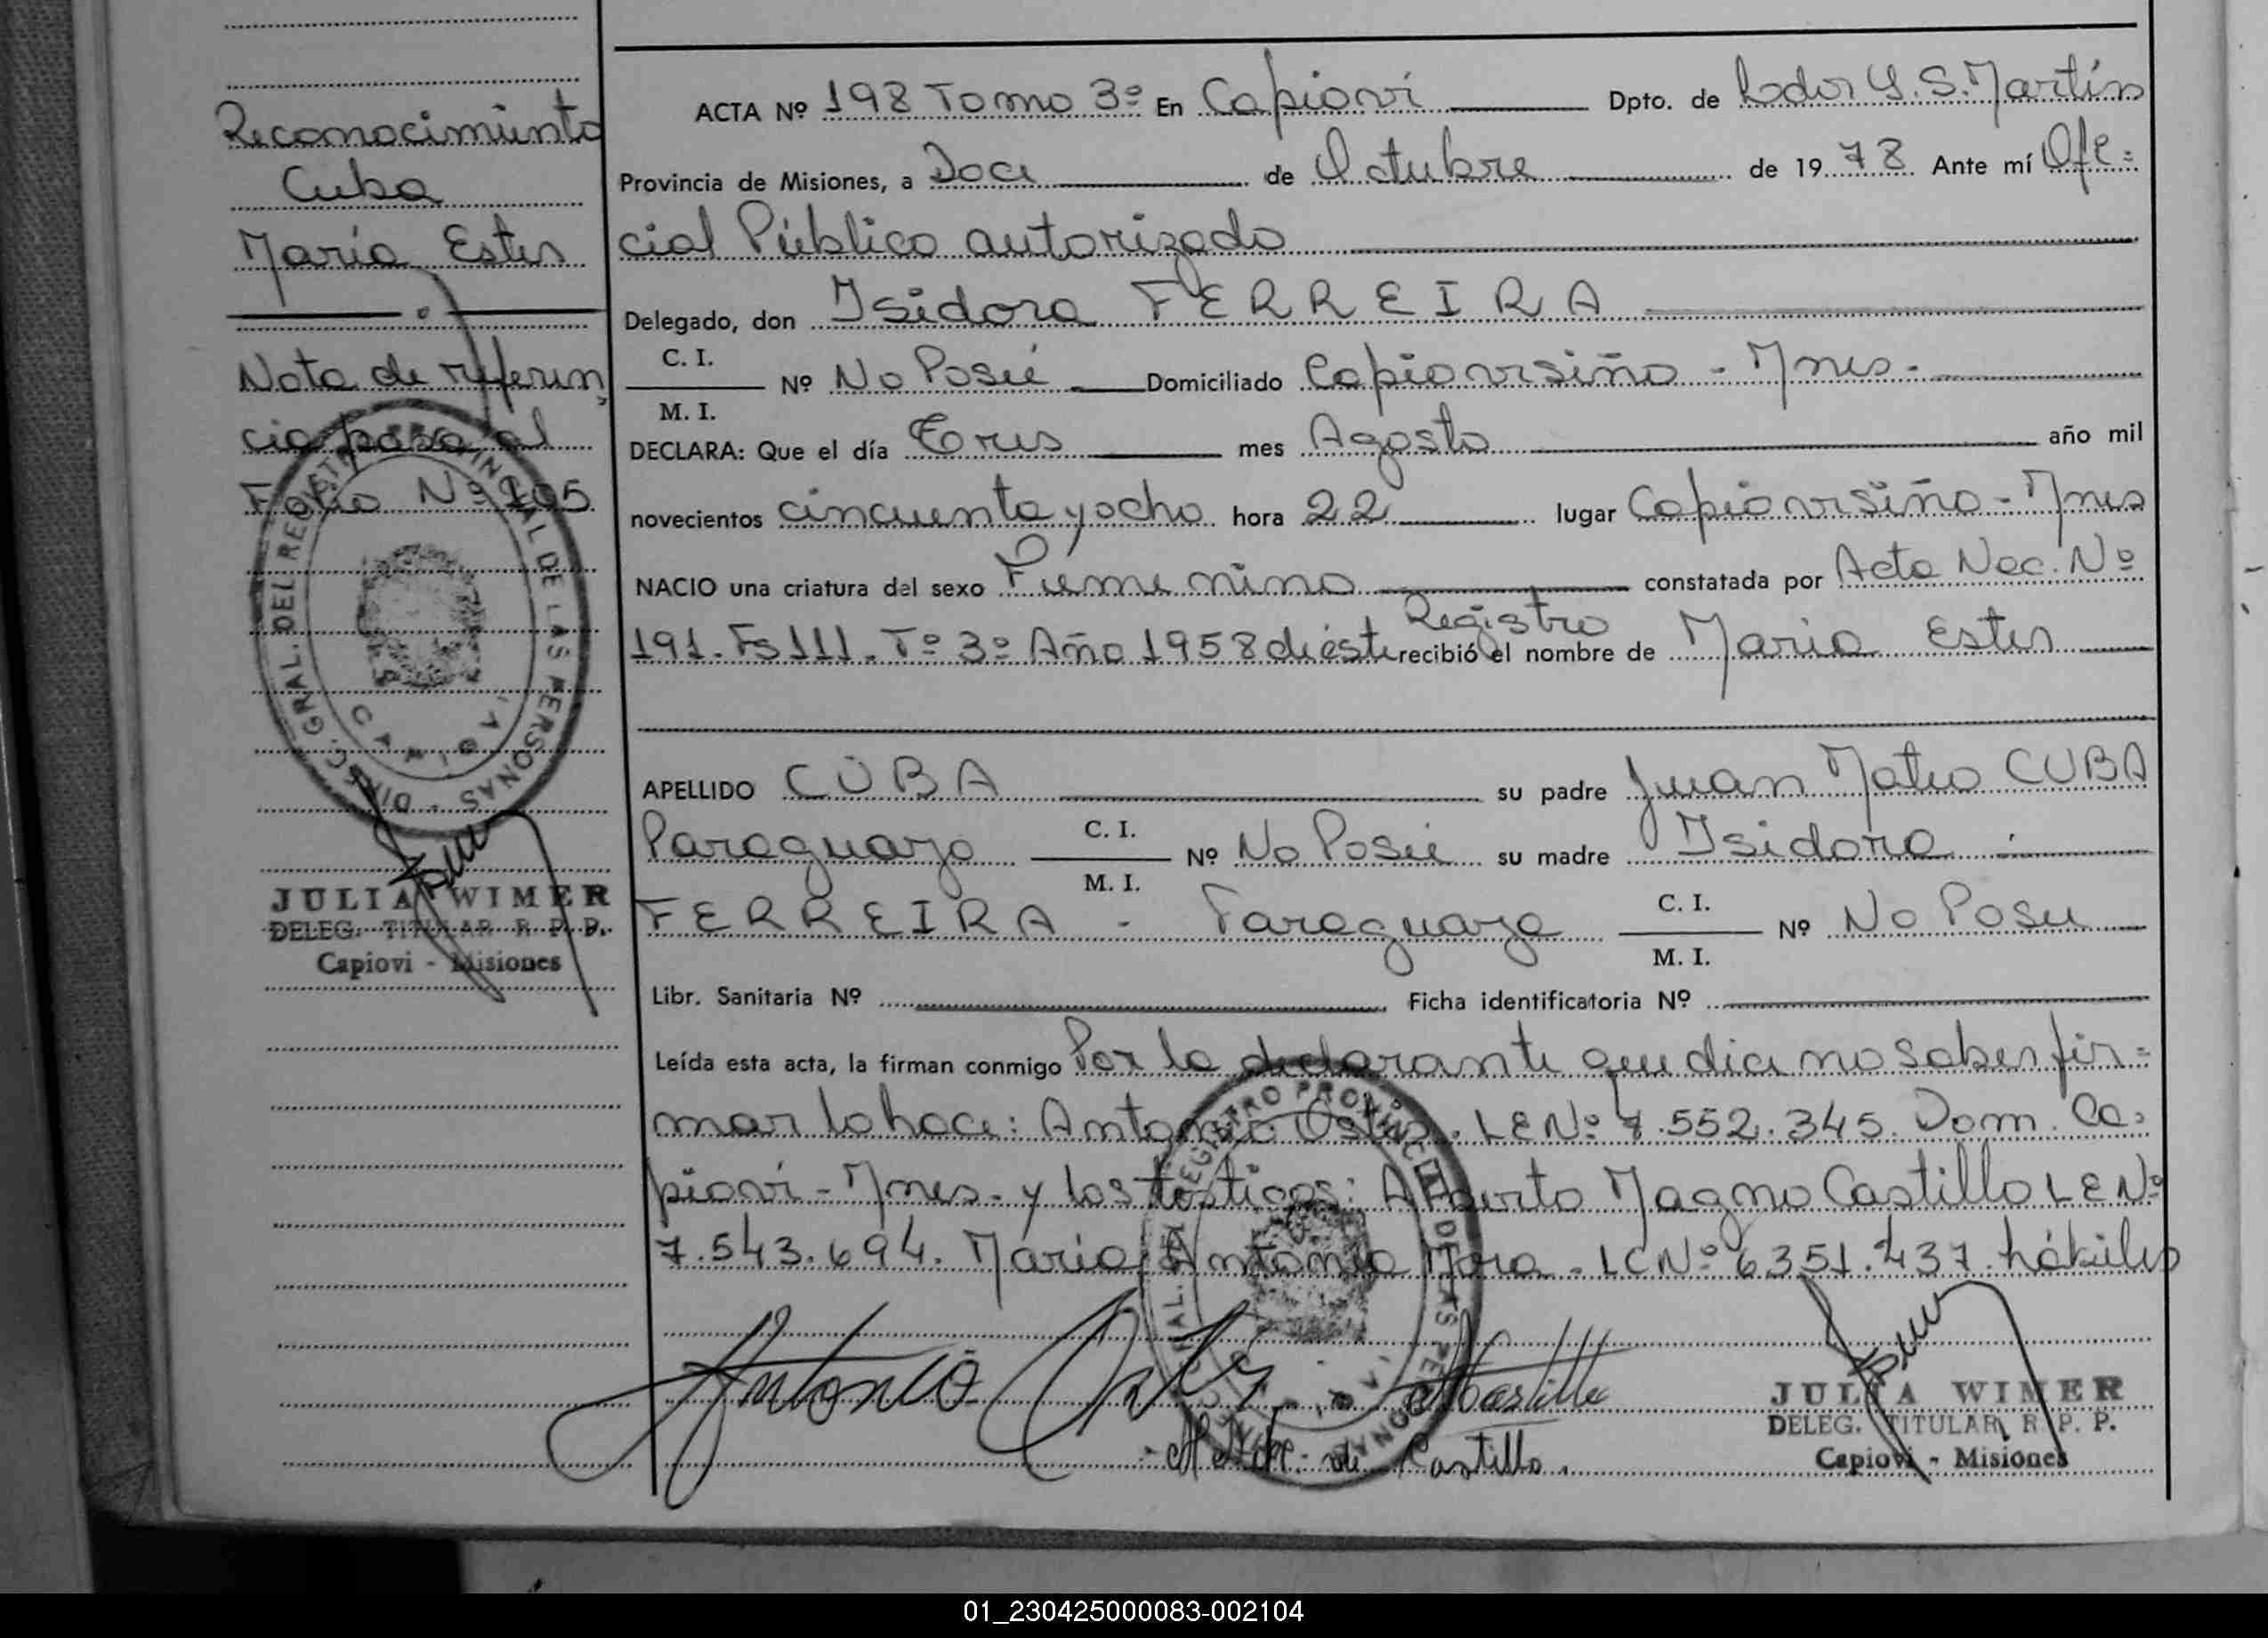 Reconocimiento
Cuba
María Ester
Nota de referen
cia pasa al
Folio Nº 105
DIREC. GRAL. DEL REGISTRO PROVINCIAL DE LAS PERSONAS
JULIA WIMER
DELEG. TITULAR R. P. P.
Capiovi - Misiones
ACTA Nº 198 Tomo 3º En Capioví Dpto. de Lbdor G. S. Martín
Provincia de Misiones, a Doce de Octubre de 1978 Ante mí Ofi=
cial Público autorizado
Delegado, don Isidora FERREIRA
C. I.
Nº No Posée Domiciliado Capioviciño - Mnes.
M. I.
DECLARA: Que el día Tres mes Agosto año mil
novecientos cincuenta y ocho hora 22 lugar Capiovisiño - Mnes
NACIO una criatura del sexo Femenino constatada por Acta Nac. Nº
Registro
191. Fs 111. Tº 3º Año 1958 de éste recibió el nombre de María Ester
APELLIDO CUBA su padre Juan Mateo CUBA
Paraguayo C. I. Nº No Posée su madre Isidora
M. I.
FERREIRA - Paraguaya C. I. Nº No Posee
M. I.
Libr. Sanitaria Nº Ficha identificatoria Nº
Leída esta acta, la firman conmigo Por la declarante que dice no saber fir=
mar lo hace: Antonio LE Nº 7.552.345. Dom. Ca=
pioví - Mnes - y los testigos: Alberto Magno Castillo LE Nº
7.543.694. María Antonia Mora - LC Nº 6351.437. hábiles
Antonio
Castillo
de Castillo.
DIREC. GRAL. DEL REGISTRO PROVINCIAL DE LAS PERSONAS
JULIA WIMER
DELEG. TITULAR R. P. P.
Capiovi - Misiones
01_230425000083-002104